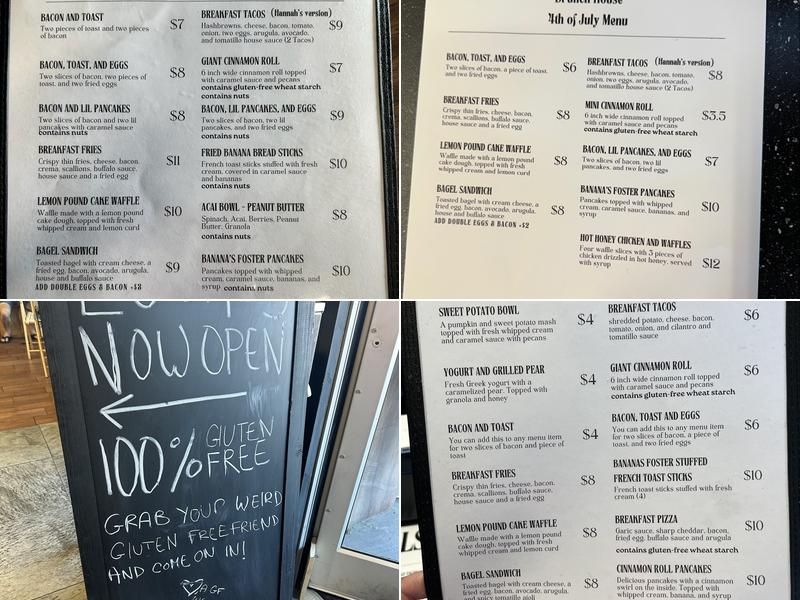 BACON AND TOAST $7
Two pieces of toast and two pieces
of bacon
BACON, TOAST, AND EGGS $8
Two slices of bacon, two pieces of
toast, and two fried eggs
BACON AND LIL PANCAKES $8
Two slices of bacon and two lil
pancakes with caramel sauce
contains nuts
BREAKFAST FRIES $11
Crispy thin fries, cheese, bacon,
crema, scallions, buffalo sauce,
house sauce and a fried egg
LEMON POUND CAKE WAFFLE $10
Waffle made with a lemon pound
cake dough, topped with fresh
whipped cream and lemon curd
BAGEL SANDWICH $9
Toasted bagel with cream cheese, a
fried egg, bacon, avocado, arugula,
house and buffalo sauce
ADD DOUBLE EGGS & BACON +$3
BREAKFAST TACOS (Hannah's version) $9
Hashbrowns, cheese, bacon, tomato,
onion, two eggs, arugula, avocado,
and tomatillo house sauce (2 Tacos)
GIANT CINNAMON ROLL $7
6 inch wide cinnamon roll topped
with caramel sauce and pecans
contains gluten-free wheat starch
contains nuts
BACON, LIL PANCAKES, AND EGGS $9
Two slices of bacon, two lil
pancakes, and two fried eggs
contains nuts
FRIED BANANA BREAD STICKS $10
French toast sticks stuffed with fresh
cream, covered in caramel sauce
and bananas
contains nuts
ACAI BOWL - PEANUT BUTTER $8
Spinach, Acai, Berries, Peanut
Butter, Granola
contains nuts
BANANA'S FOSTER PANCAKES $10
Pancakes topped with whipped
cream, caramel sauce, bananas, and
syrup contains nuts
Brunch House
4th of July Menu
BACON, TOAST, AND EGGS $6
Two slices of bacon, a piece of toast,
and two fried eggs
BREAKFAST FRIES $8
Crispy thin fries, cheese, bacon,
crema, scallions, buffalo sauce,
house sauce and a fried egg
LEMON POUND CAKE WAFFLE $8
Waffle made with a lemon pound
cake dough, topped with fresh
whipped cream and lemon curd
BAGEL SANDWICH $8
Toasted bagel with cream cheese, a
fried egg, bacon, avocado, arugula,
house and buffalo sauce
ADD DOUBLE EGGS & BACON +$2
BREAKFAST TACOS (Hannah's version) $8
Hashbrowns, cheese, bacon, tomato,
onion, two eggs, arugula, avocado,
and tomatillo house sauce (2 Tacos)
MINI CINNAMON ROLL $3.5
6 inch wide cinnamon roll topped
with caramel sauce and pecans
contains gluten-free wheat starch
BACON, LIL PANCAKES, AND EGGS $7
Two slices of bacon, two lil
pancakes, and two fried eggs
BANANA'S FOSTER PANCAKES $10
Pancakes topped with whipped
cream, caramel sauce, bananas, and
syrup
HOT HONEY CHICKEN AND WAFFLES $12
Four waffle slices with 3 pieces of
chicken drizzled in hot honey, served
with syrup
NOW OPEN
100% GLUTEN
FREE
GRAB YOUR WEIRD
GLUTEN FREE FRIEND
AND COME ON IN!
SWEET POTATO BOWL $4
A pumpkin and sweet potato mash
topped with fresh whipped cream
and caramel sauce with pecans
YOGURT AND GRILLED PEAR $4
Fresh Greek yogurt with a
caramelized pear. Topped with
granola and honey
BACON AND TOAST $4
You can add this to any menu item
for two slices of bacon and piece of
toast
BREAKFAST FRIES $8
Crispy thin fries, cheese, bacon,
crema, scallions, buffalo sauce,
house sauce and a fried egg
LEMON POUND CAKE WAFFLE $8
Waffle made with a lemon pound
cake dough, topped with fresh
whipped cream and lemon curd
BAGEL SANDWICH $8
Toasted bagel with cream cheese, a
fried egg, bacon, avocado, arugula,
and spicy tomatillo aioli
BREAKFAST TACOS $6
shredded potato, cheese, bacon,
tomato, onion, and cilantro and
tomatillo sauce
GIANT CINNAMON ROLL $6
6 inch wide cinnamon roll topped
with caramel sauce and pecans
contains gluten-free wheat starch
BACON, TOAST AND EGGS $6
You can add this to any menu item
for two slices of bacon, a piece of
toast, and two fried eggs
BANANAS FOSTER STUFFED
FRENCH TOAST STICKS $10
French toast sticks stuffed with fresh
cream (4)
BREAKFAST PIZZA $10
Garlic sauce, sharp cheddar, bacon,
fried egg, buffalo sauce and arugula
contains gluten-free wheat starch
CINNAMON ROLL PANCAKES $10
Delicious pancakes with a cinnamon
swirl on the inside. Topped with
whipped cream, banana, and syrup